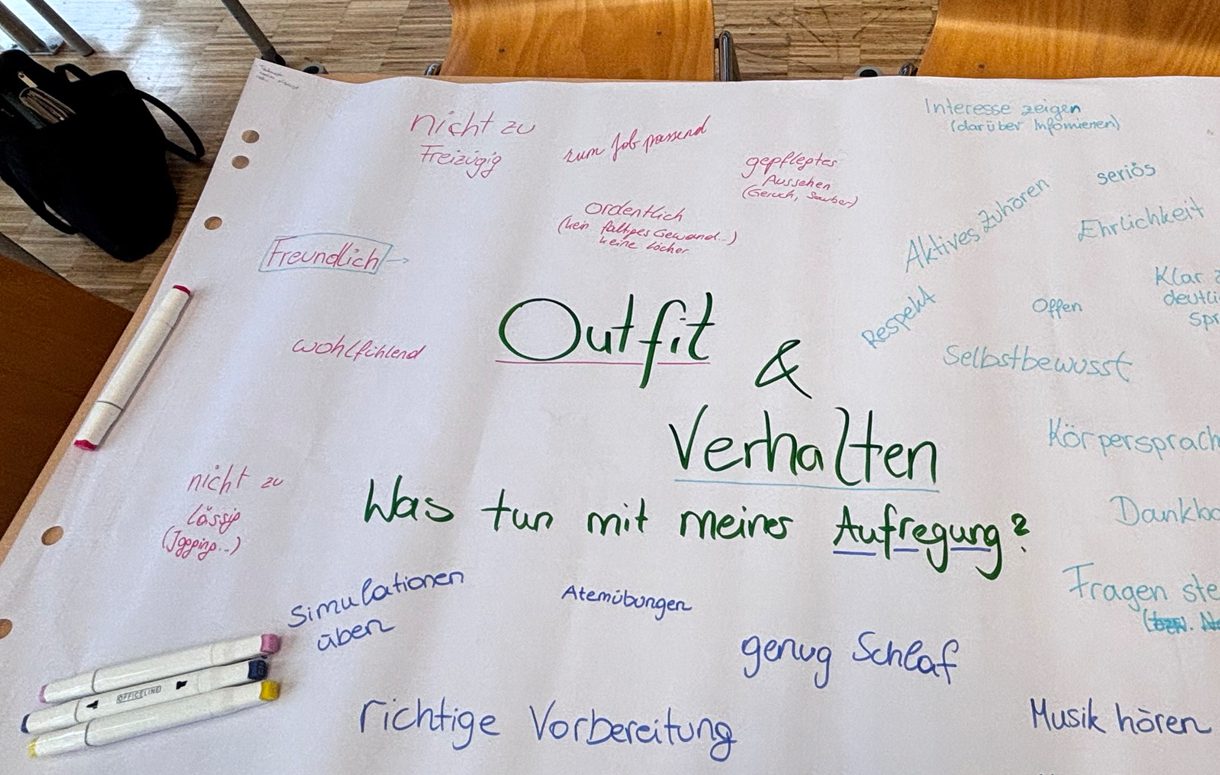 nicht zu
Freizügig
zum Job passend
gepflegtes
Aussehen
(Geruch, Sauber)
Ordentlich
(kein faltiges Gewand..)
keine Löcher
Freundlich
wohlfühlend
nicht zu
lässig
(Jogging..)
Interesse zeigen
(darüber Infomieren)
seriös
Aktives Zuhören
Ehrlichkeit
Respekt
Offen
Klar
deutli
Spr
Selbstbewusst
Körpersprach
Dankba
Fragen ste
(bzw.
Outfit
&
Verhalten
Was tun mit meiner Aufregung?
Simulationen
üben
Atemübungen
genug Schlaf
richtige Vorbereitung
Musik hören
OFFICELINE